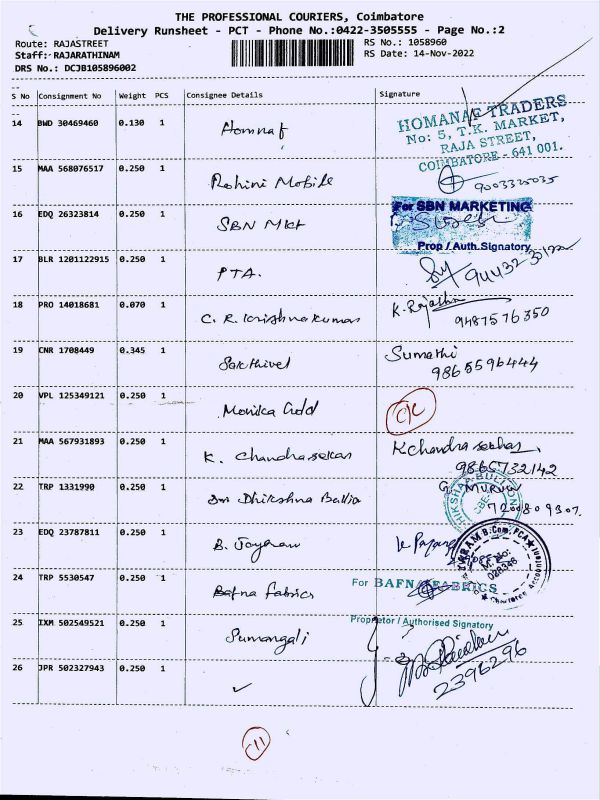 THE PROFESSIONAL COURIERS, Coimbatore
Delivery Runsheet - PCT - Phone No.:0422-3505555 - Page No.:2
Route: RAJASTREET
RS No.: 1058960
Staff:- RAJARATHINAM
RS Date: 14-Nov-2022
DRS No.: DCJB105896002
S No Consignment No Weight PCS Consignee Details Signature
14 BWD 30469460 0.130 1 Homnaf
HOMANAF TRADERS
No: 5, T.K. MARKET,
RAJA STREET,
COIMBATORE - 641 001.
15 MAA 568076517 0.250 1 Rohini Mobile
9003325035
16 EDQ 26323814 0.250 1 SBN Mkt
For SBN MARKETING
Prop / Auth.Signatory
17 BLR 1201122915 0.250 1 PTA.
18 PRO 14018681 0.070 1 C. R. Krishnakumar
9487576350
19 CNR 1708449 0.345 1 Sakthivel
Sumathi
9865596444
20 VPL 125349121 0.250 1 Monika Gold
21 MAA 567931893 0.250 1 K. Chandrasekar
K Chandra sekhar
9865732142
22 TRP 1331990 0.250 1 Sri Dhikshna Bullio
7200809307.
23 EDQ 23787811 0.250 1 B. Jayaram
24 TRP 5530547 0.250 1 Bafna fabrics
For BAFNA FABRICS
25 IXM 502549521 0.250 1 Sumangali
Proprietor / Authorised Signatory
26 JPR 502327943 0.250 1
2396296